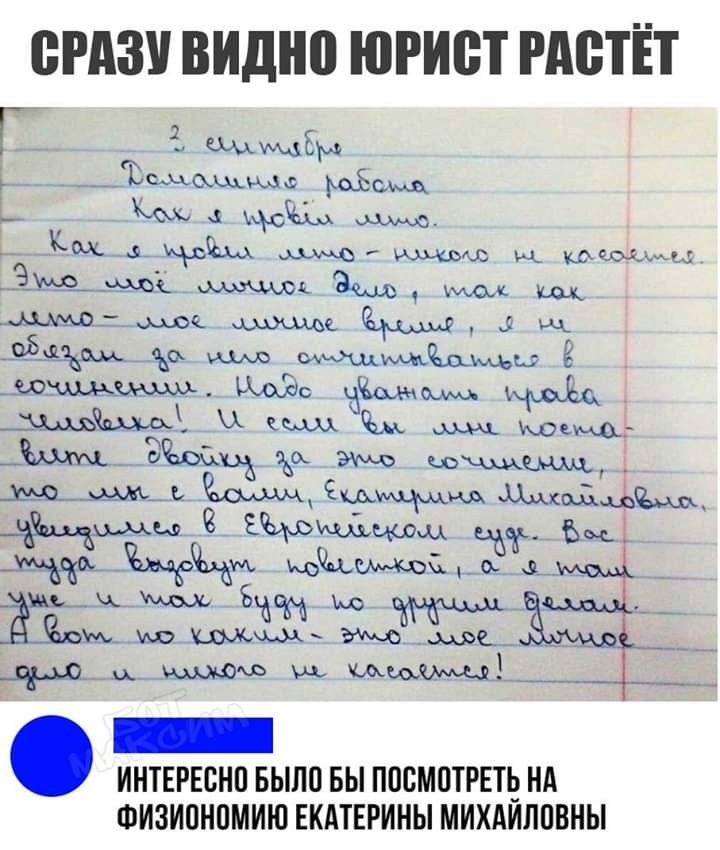 СРАЗУ ВИДНО ЮРИСТ РАСТЁТ
3 сентября
Домашняя работа
Как я провёл лето.
Как я провел лето - никого не касается.
Это моё личное дело, так как
лето - мое личное время, я не
обязан за него отчитываться в
сочинении. Надо уважать права
человека! И если вы мне поста-
вите двойку за это сочинение,
то мы с вами, Екатерина Михайловна,
увидимся в Европейском суде. Вас
туда вызовут повесткой, а я там
уже и так буду по другим делам.
А вот по каким - это мое личное
дело и никого не касается!
БОТ
МАКСИМ
ИНТЕРЕСНО БЫЛО БЫ ПОСМОТРЕТЬ НА
ФИЗИОНОМИЮ ЕКАТЕРИНЫ МИХАЙЛОВНЫ